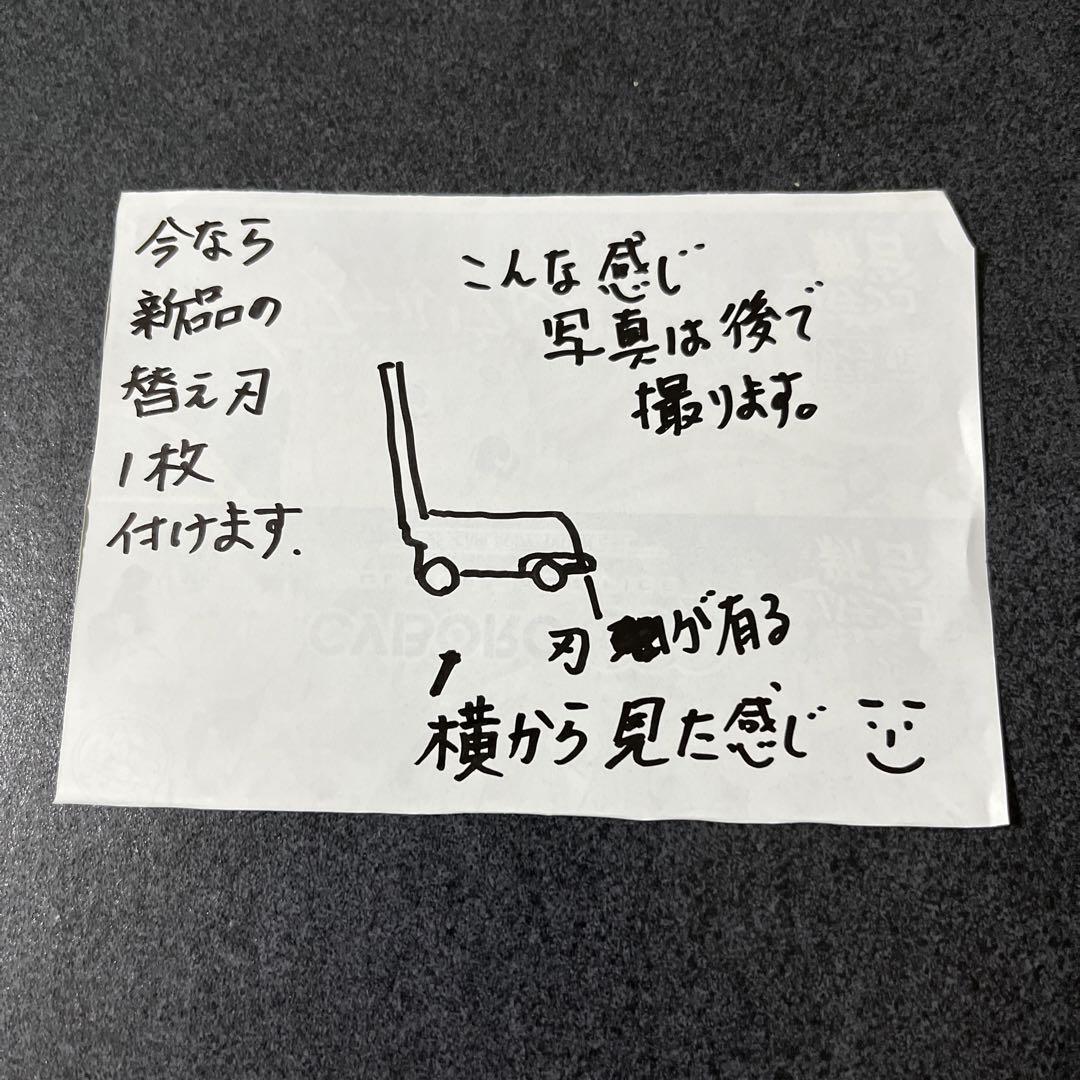 今なら
新品の
替え刃
1枚
付けます.
こんな感じ
写真は後で
撮ります。
刃が有る
横から見た感じ